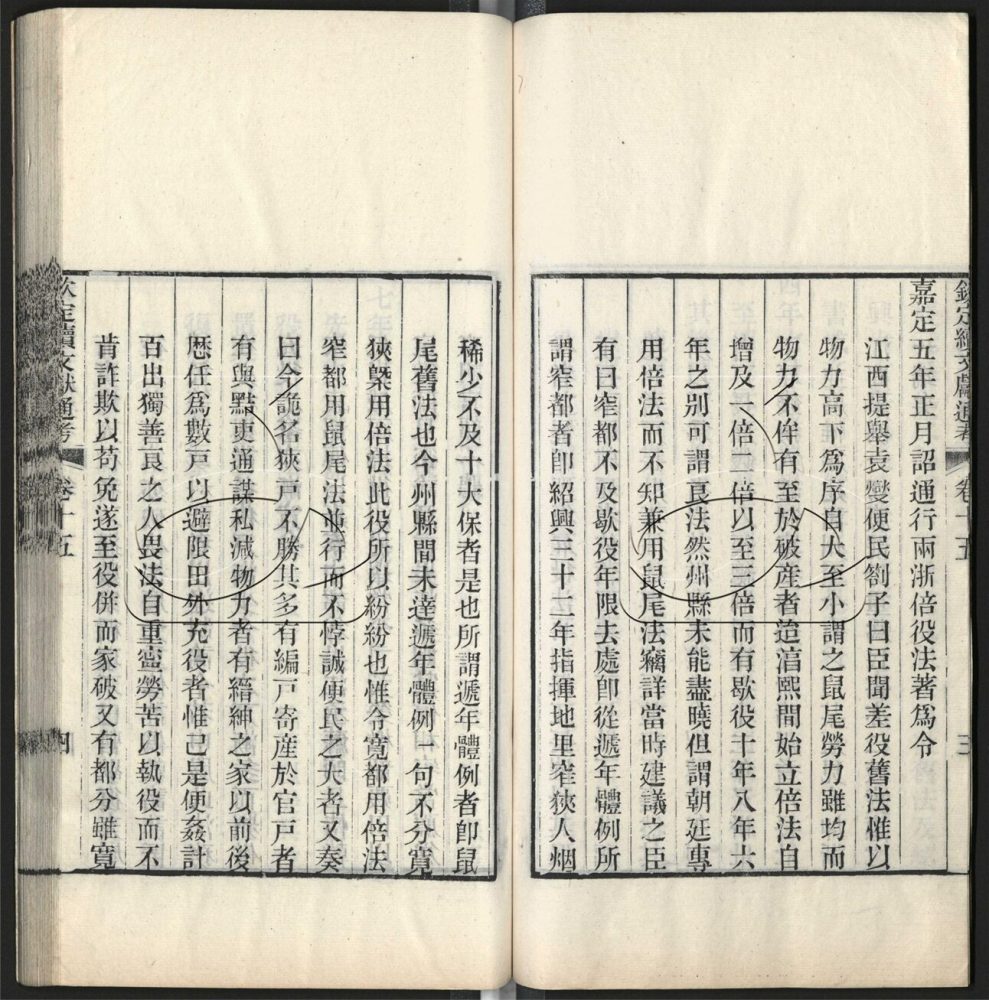 欽定續文獻通考 卷十五 三
嘉定五年正月詔通行兩浙倍役法著爲令
江西提舉袁燮便民劄子曰臣聞差役舊法惟以
物力高下爲序自大至小謂之鼠尾勞力雖均而
物力不侔有至於破產者迨淳熙間始立倍法自
增及一倍二倍以至三倍而有歇役十年八年六
年之別可謂良法然州縣未能盡曉但謂朝廷專
用倍法而不知兼用鼠尾法竊詳當時建議之臣
有曰窄都不及歇役年限去處卽從遞年體例所
謂窄都者卽紹興三十二年指揮地里窄狹人烟
稀少不及十大保者是也所謂遞年體例者卽鼠
尾舊法也今州縣間未達遞年體例一句不分寬
狹槩用倍法此役所以紛紛也惟令寬都用倍法
窄都用鼠尾法並行而不悖誠便民之大者又奏
曰今詭名狹戸不勝其多有編戸寄產於官戸者
有與點吏通謀私減物力者有縉紳之家以前後
歷任爲數戸以避限田外充役者惟己是便姦計
百出獨善良之人畏法自重寧勞苦以執役而不
肯詐欺以苟免遂至役併而家破又有都分雖寬
欽定續文獻通考 卷十五 四